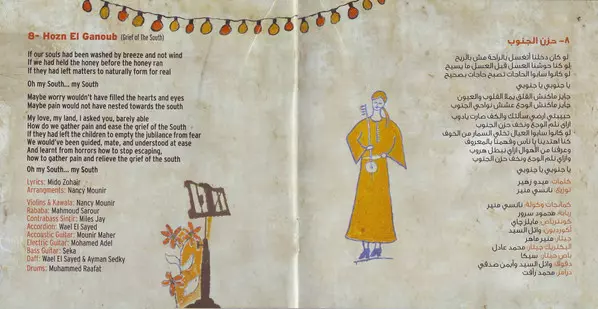 8- Hozn El Ganoub (Grief of The South)
If our souls had been washed by breeze and not wind
If we had held the honey before the honey ran
If they had left matters to naturally form for real
Oh my South... my South
Maybe worry wouldn't have filled the hearts and eyes
Maybe pain would not have nested towards the south
My love, my land, I asked you, barely able
How do we gather pain and ease the grief of the South
If they had left the children to empty the jubilance from fear
We would've been guided, mate, and understood at ease
And learnt from horrors how to stop escaping,
how to gather pain and relieve the grief of the south
Oh my South... my South
Lyrics: Mido Zohair
Arrangments: Nancy Mounir
Violins & Kawala: Nancy Mounir
Rababa: Mahmoud Sarour
Contrabass Sinclir: Miles Jay
Accordion: Wael El Sayed
Accoustic Guitar: Mounir Maher
Electric Guitar: Mohamed Adel
Bass Guitar: Seka
Daff: Wael El Sayed & Ayman Sedky
Drums: Muhammed Raafat
٨- حزن الجنوب
لو كان دخلنا اتغسل بالراحة مش بالريح
لو كنا حوشنا العسل قبل العسل ما يسيح
لو كانوا سابوا الحاجات تصبح حاجات بصحيح
يا جنوبي يا جنوبي
جايز ماكنش القلق يملا القلوب والعيون
جايز ماكنش الوجع عشش نواحي الجنوب
حبيبتي ارضي سألتك والكف صارت يادوب
ازاي نلم الوجع ونخف حزن الجنوب
لو كانوا سابوا العيال تخلي السمار من الخوف
كنا اهتدينا يا ناس وفهمنا بالمعروف
وعرفنا من الأهوال ازاي نبطل هروب
وازاي نلم الوجع ونخف حزن الجنوب
يا جنوبي يا جنوبي
كلمات: ميدو زهير
توزيع: نانسي منير
كمانجات وكولة: نانسي منير
ربابة: محمود سرور
كونترباص: مايلز جاي
أكورديون: وائل السيد
جيتار: منير ماهر
اليكتريك جيتار: محمد عادل
باص جيتار: سيكا
دفوف: وائل السيد وأيمن صدقي
درامز: محمد رأفت